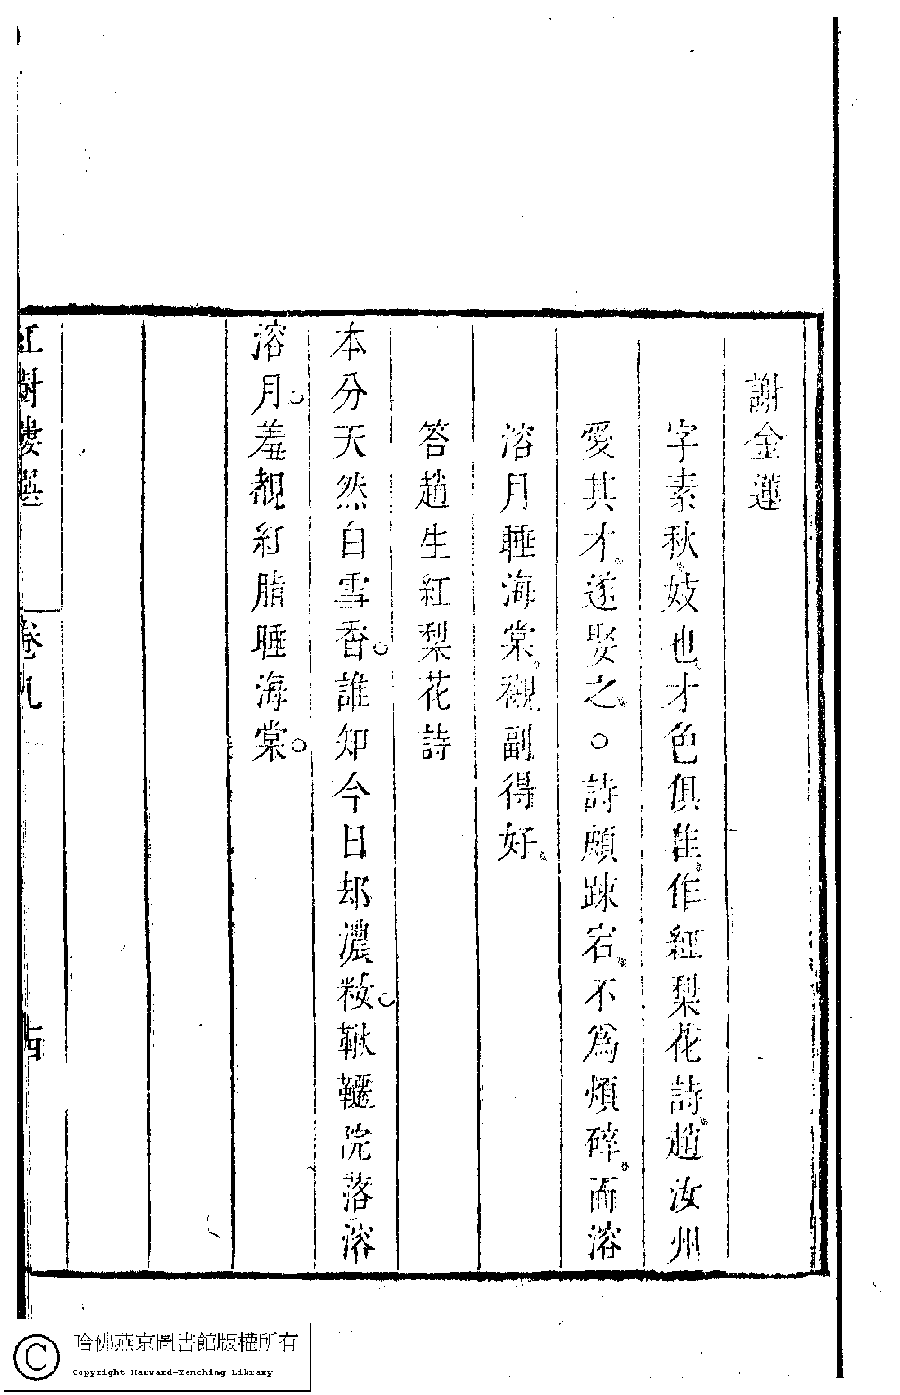 謝金蓮
字素秋妓也才色俱佳作紅梨花詩趙汝州
愛其才遂娶之○詩頗踈宕不為煩碎而溶
溶月睡海棠襯副得好
答趙生紅梨花詩
本分天然白雪香誰知今日却濃粧鞦韆院落溶
溶月羞覩紅脂睡海棠
紅樹樓選
卷九
十四
哈佛燕京圖書館版權所有
Copyright Harvard-Yenching Library